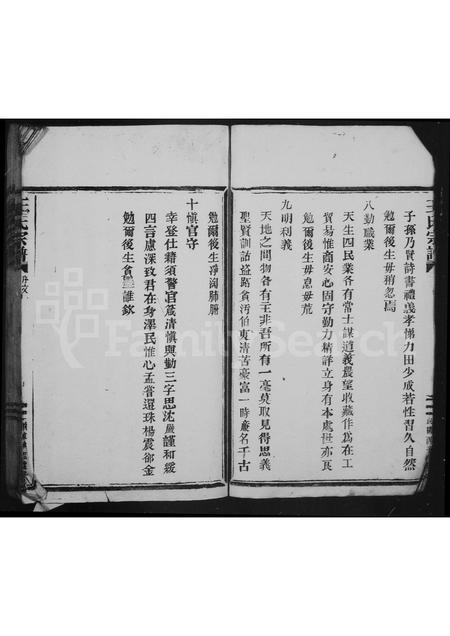 王氏宗譜
子孫乃賢詩書禮義孝悌力田少成若性習久自然
勉爾後生毋稍忽焉
八勤職業
天生四民業各有常士謀道義農望收藏作為在工
貿易惟商安心固守勤力精詳立身有本處世亦良
勉爾後生毋怠毋荒
九明利義
天地之間物各有主非吾所有一毫莫取見得思義
聖賢訓詁盜跖貪汚伯夷清苦豪富一時廉名千古
勉爾後生凈洵肺腑
十愼官守
幸登仕籍須警官箴清愼與勤三字思沈嚴謹和緩
四言慮深致君在身澤民惟心孟嘗還珠楊震卻金
勉爾後生貪墨誰欽
王氏宗譜
FamilySearch